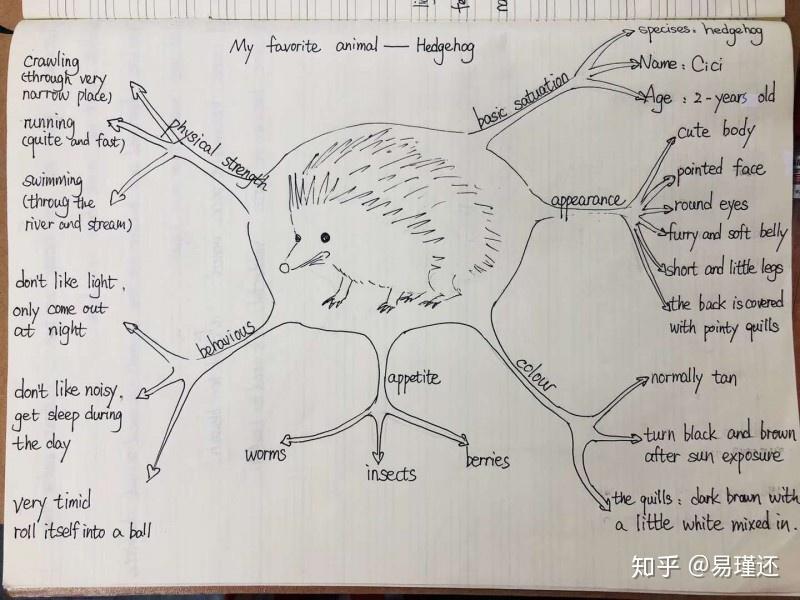 My favorite animal — Hedgehog
crawling
(through very
narrow place)
running
(quite and fast)
swimming
(throug the
river and stream)
physical strength
basic satuation
specises: hedgehog
Name: Cici
Age: 2-years old
appearance
cute body
pointed face
round eyes
furry and soft belly
short and little legs
the back is covered
with pointy quills
behavious
don't like light,
only come out
at night
don't like noisy,
get sleep during
the day
very timid
roll itself into a ball
appetite
worms
insects
berries
colour
normally tan
turn black and brown
after sun exposure
the quills: dark brown with
a little white mixed in.
知乎 @易瑾还